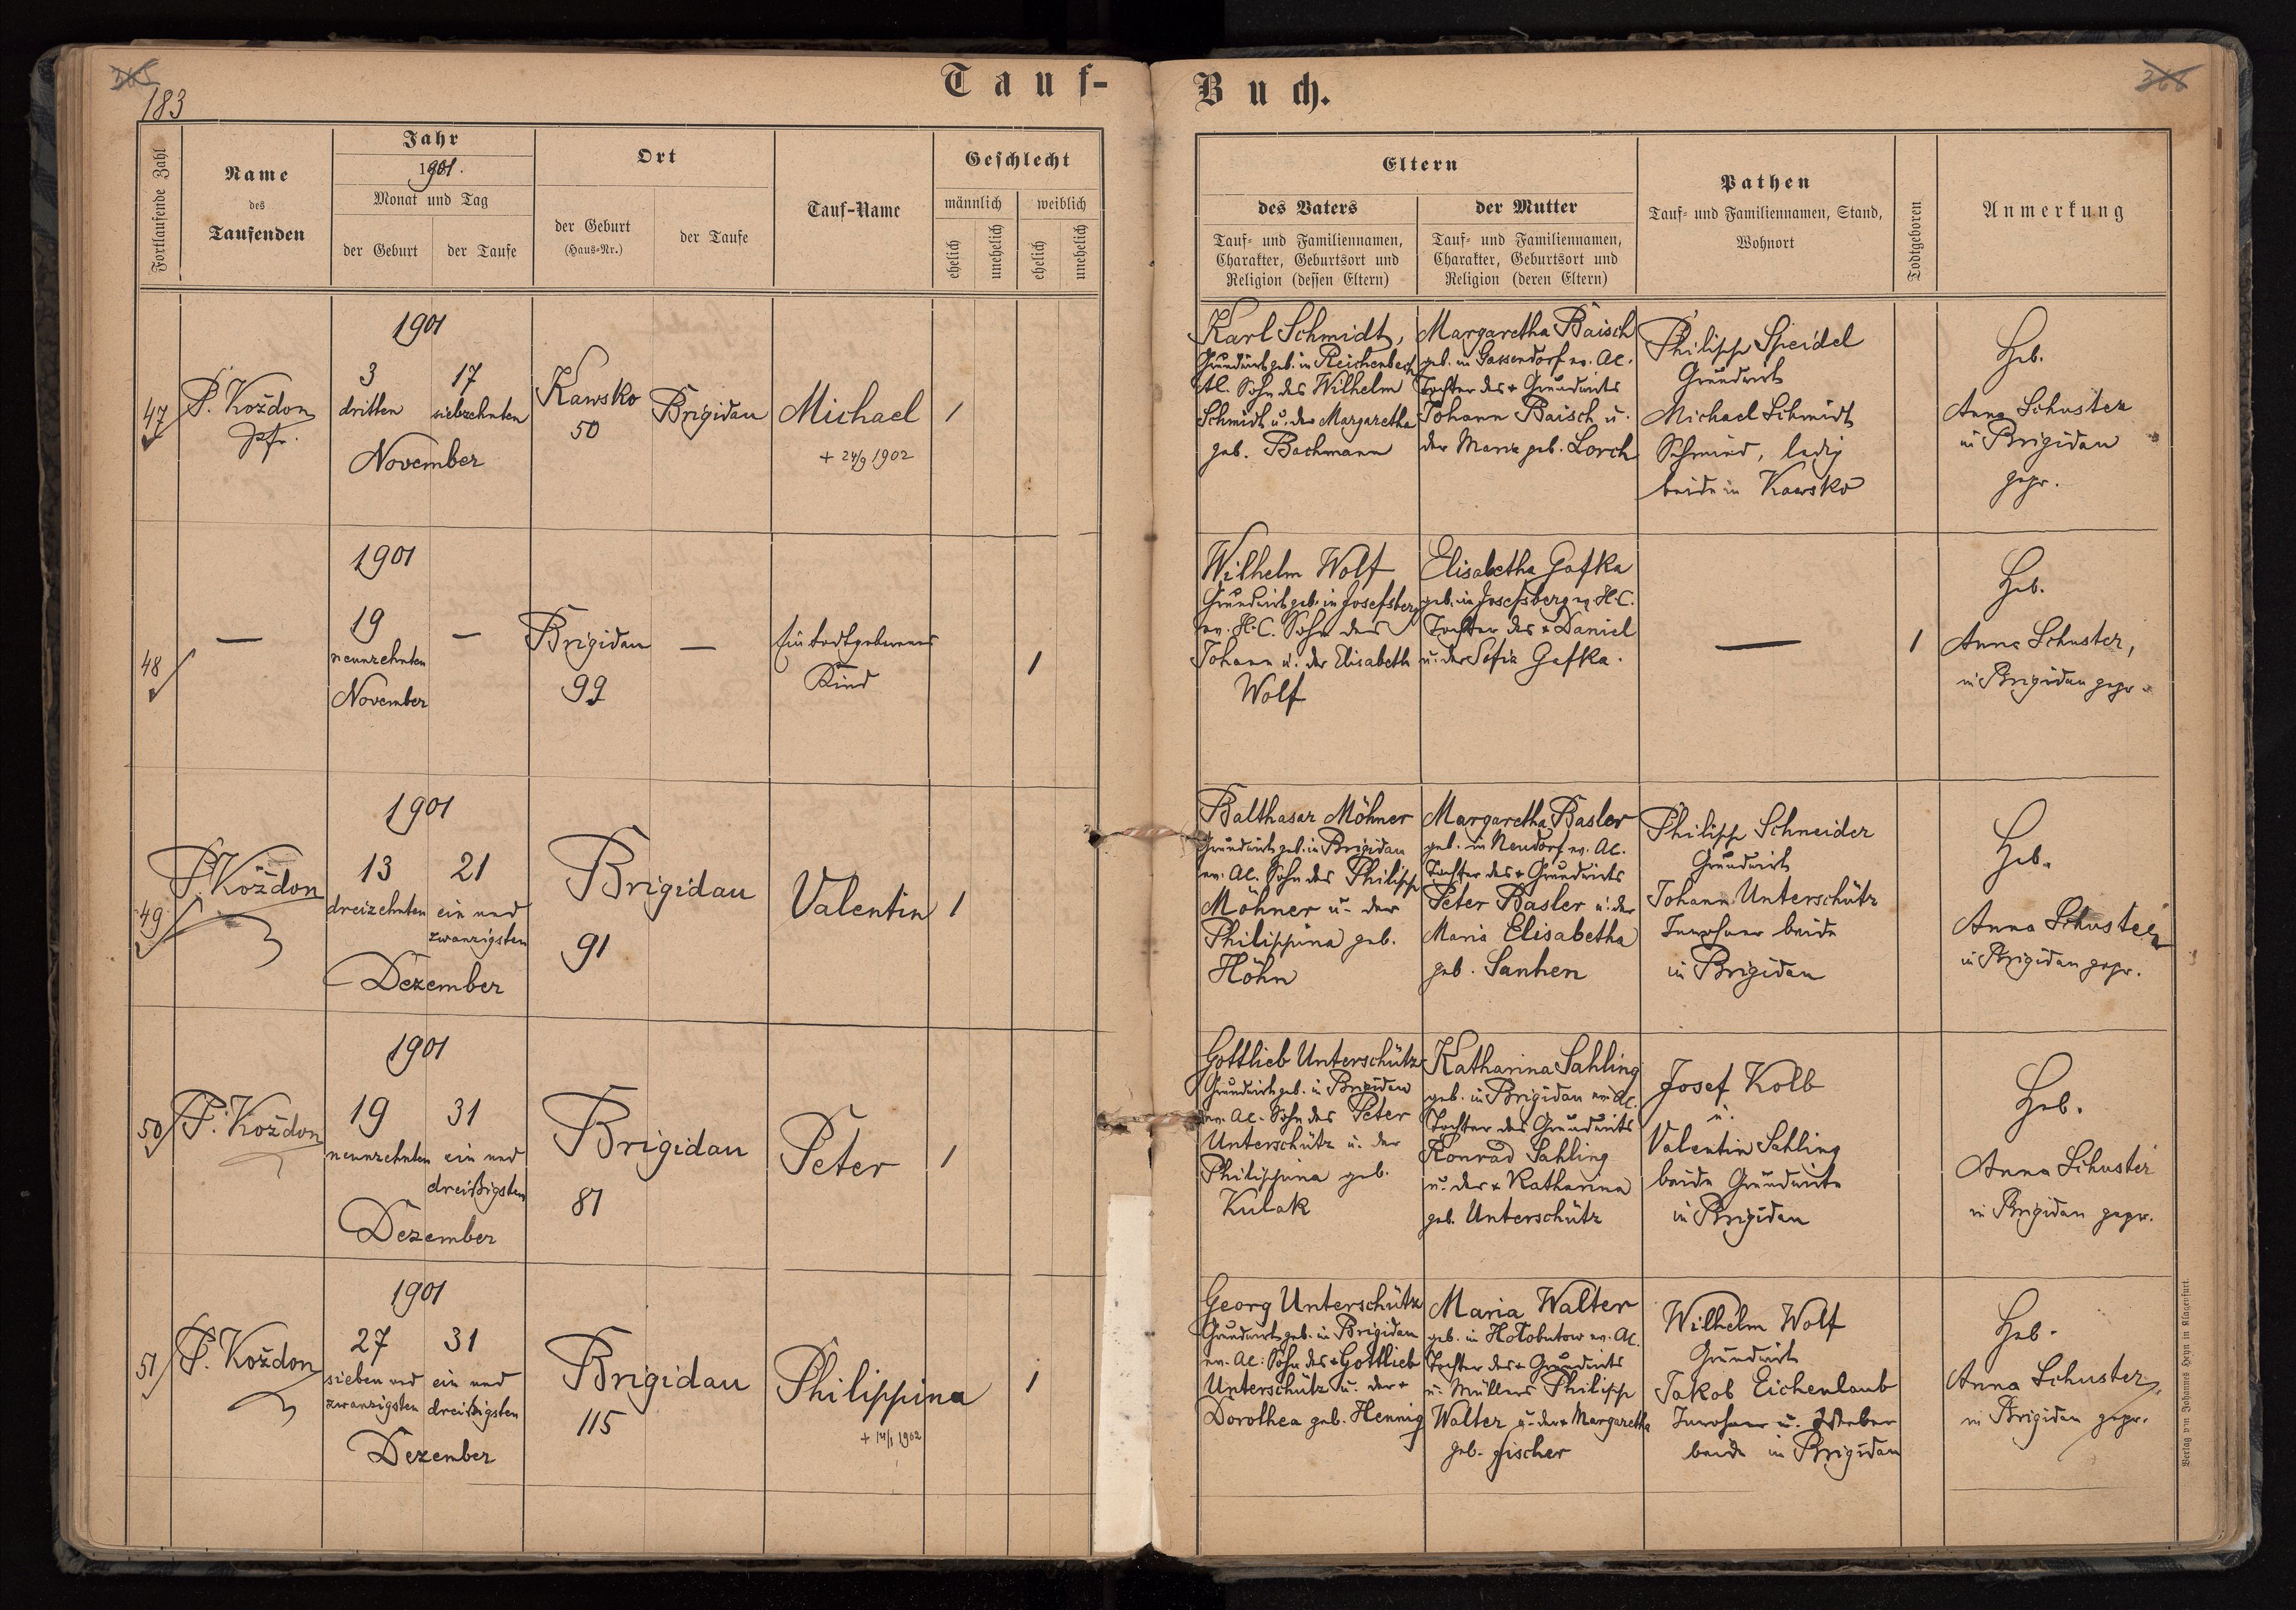 365
183
Tauf-
Buch.
366
Fortlaufende Zahl
Name
des
Taufenden
Jahr
1901.
Monat und Tag
der Geburt
der Taufe
Ort
der Geburt
(Haus-Nr.)
der Taufe
Tauf-Name
Geschlecht
männlich
weiblich
ehelich
unehelich
ehelich
unehelich
Eltern
des Vaters
Tauf- und Familiennamen,
Charakter, Geburtsort und
Religion (dessen Eltern)
der Mutter
Tauf- und Familiennamen,
Charakter, Geburtsort und
Religion (deren Eltern)
Pathen
Tauf- und Familiennamen, Stand,
Wohnort
Todtgeboren
Anmerkung
47
P. Koždon
Pfr.
1901
3
dritten
17
siebzehnten
November
Kawsko
50
Brigidau
Michael
+ 24/9 1902
1
Karl Schmidt,
Grundwirt geb. in Reichenbach
AC. Sohn des Wilhelm
Schmidt u. der Margaretha
geb. Bachmann
Margaretha Baisch
geb. in Gassendorf ev. AC.
Tochter des + Grundwirts
Johann Baisch u.
der Maria geb. Lorch
Philipp Speidel
Grundwirt
Michael Schmidt
Schmied, ledig
beide in Kawsko
Heb.
Anna Schuster
in Brigidau
gepr.
48
—
1901
19
neunzehnten
November
—
Brigidau
99
—
Ein todtgeborenes
Kind
1
Wilhelm Wolf
Grundwirt geb. in Josefsberg
ev. H.C. Sohn des
Johann u. der Elisabeth
Wolf
Elisabetha Gafka
geb. in Josefsberg ev. H.C.
Tochter des + Daniel
u. der Sofia Gafka.
—
1
Heb.
Anna Schuster,
in Brigidau gepr.
49
P. Koždon
1901
13
dreizehnten
21
ein und
zwanzigsten
Dezember
Brigidau
91
Valentin
1
Balthasar Möhner
Grundwirt geb. in Brigidau
ev. AC. Sohn des Philipp
Möhner u. der
Philippina geb.
Höhn
Margaretha Basler
geb. in Neudorf ev. AC.
Tochter des + Grundwirts
Peter Basler u. der
Maria Elisabetha
geb. Sanhen
Philipp Schneider
Grundwirt
Johann Unterschütz
Inwohner beide
in Brigidau
Heb.
Anna Schuster
in Brigidau gepr.
50
P. Koždon
1901
19
neunzehnten
31
ein und
dreißigsten
Dezember
Brigidau
81
Peter
1
Gottlieb Unterschütz
Grundwirt geb. in Brigidau
ev. AC. Sohn des Peter
Unterschütz u. der
Philippina geb.
Kulak
Katharina Sahling
geb. in Brigidau ev. AC.
Tochter des Grundwirts
Konrad Sahling
u. der + Katharina
geb. Unterschütz
Josef Kolb
u.
Valentin Sahling
beide Grundwirte
in Brigidau
Heb.
Anna Schuster
in Brigidau gepr.
51
P. Koždon
1901
27
sieben und
zwanzigsten
31
ein und
dreißigsten
Dezember
Brigidau
115
Philippina
+ 14/1 1902
1
Georg Unterschütz
Grundwirt geb. in Brigidau
ev. AC. Sohn des + Gottlieb
Unterschütz u. der +
Dorothea geb. Hennig
Maria Walter
geb. in Hołobutow ev. AC.
Tochter des + Grundwirts
u. Müllers Philipp
Walter u. der + Margaretha
geb. Fischer
Wilhelm Wolf
Grundwirt
Jakob Eichenlaub
Inwohner u. Weber
beide in Brigidau
Heb.
Anna Schuster,
in Brigidau gepr.
Verlag von Johannes Heyn in Klagenfurt.